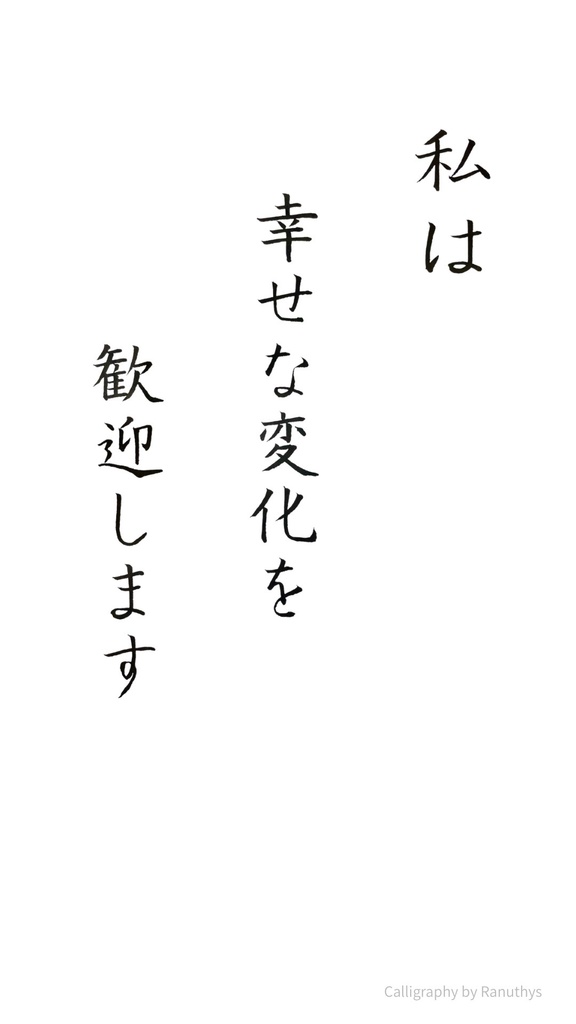 私は
幸せな変化を
歓迎します
Calligraphy by Ranuthys